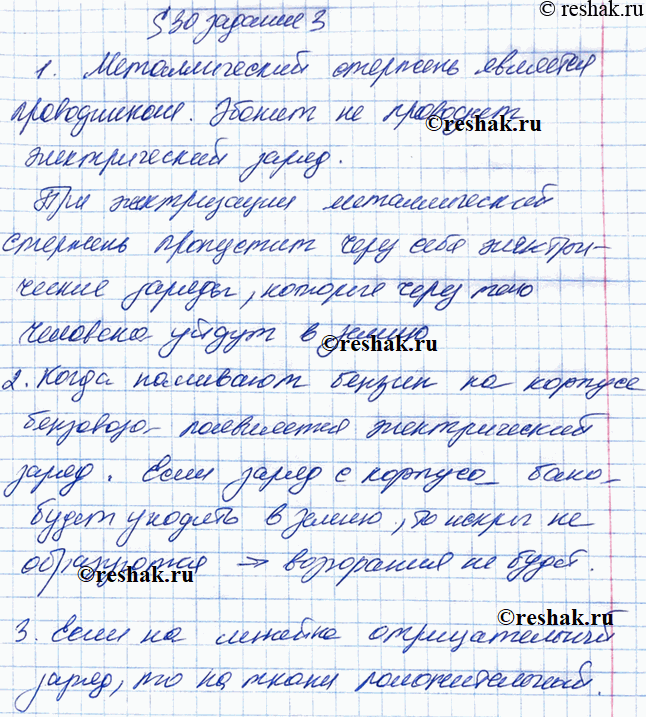 ©reshak.ru
§30 задание 3
1. Металлический стержень является
проводником. Эбонит не проводит
©reshak.ru
электрический заряд.
При электризации металлический
стержень пропустит через себя электри-
ческие заряды, которые через тело
человека уйдут в землю
©reshak.ru
2. Когда наливают бензин на корпусе
бензовоза появляется электрический
заряд. Если заряд с корпуса бака
будет уходить в землю, то искры не
образуются → возгорания не будет.
©reshak.ru
©reshak.ru
3. Если на линейке отрицательный
заряд, то на ткани положительный.